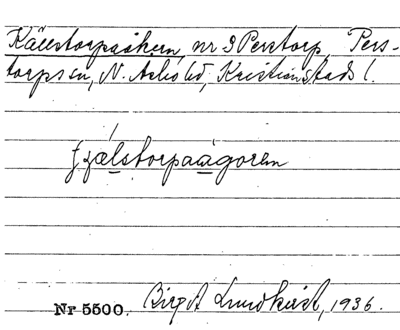 Källstorpaåkern, nr 9 Perstorp, Pers-
torps sn, N. Åsbo hd, Kristianstads l.
Nr 5500. Birgit Lundkvist, 1936.